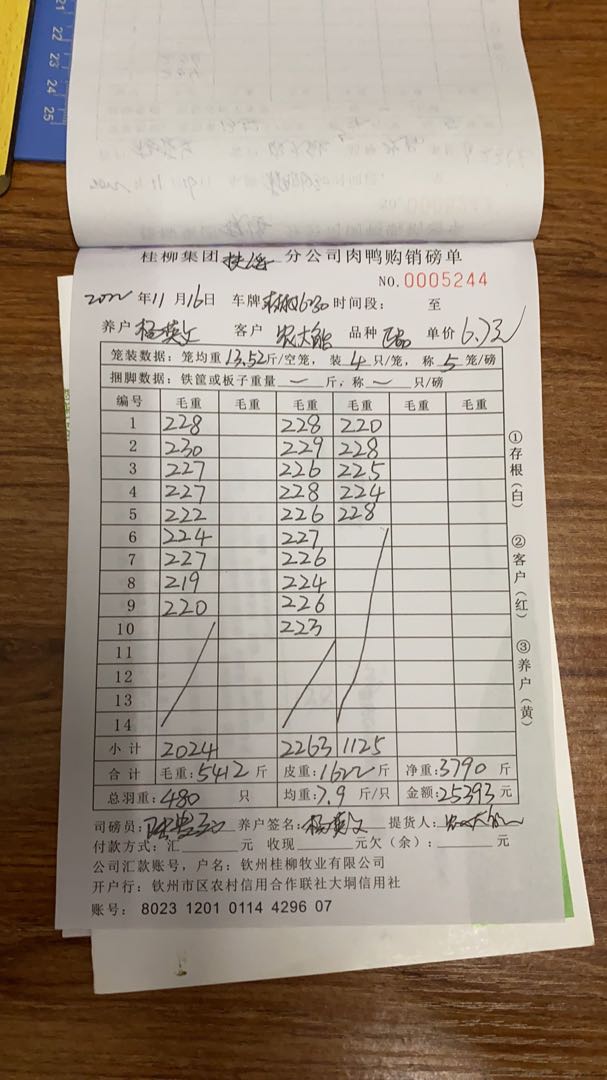 21
22
23
24
25
桂柳集团 分公司肉鸭购销磅单
NO.0005244
2022年11月16日 车牌 6230 时间段： 至
养户 杨 文 客户 农大 品种 单价 6.7元
笼装数据：笼均重13.52斤/空笼，装4只/笼，称5笼/磅
捆脚数据：铁筐或板子重量 — 斤，称 — 只/磅
编号 毛重 毛重 毛重 毛重 毛重 毛重
1 228 228 220
2 230 229 228
3 227 226 225
4 227 228 224
5 222 226 228
6 224 227
7 227 226
8 219 224
9 220 226
10 223
11
12
13
14
小计 2024 2263 1125
合计 毛重：5412斤 皮重：1622斤 净重：3790斤
总羽重：480 只 均重：7.9 斤/只 金额：25393元
司磅员： 养户签名：杨 文 提货人：农大
付款方式：汇 元 收现 元欠（余）： 元
公司汇款账号，户名：钦州桂柳牧业有限公司
开户行：钦州市区农村信用合作联社大垌信用社
账号：8023 1201 0114 4296 07
①存根（白）
②客户（红）
③养户（黄）